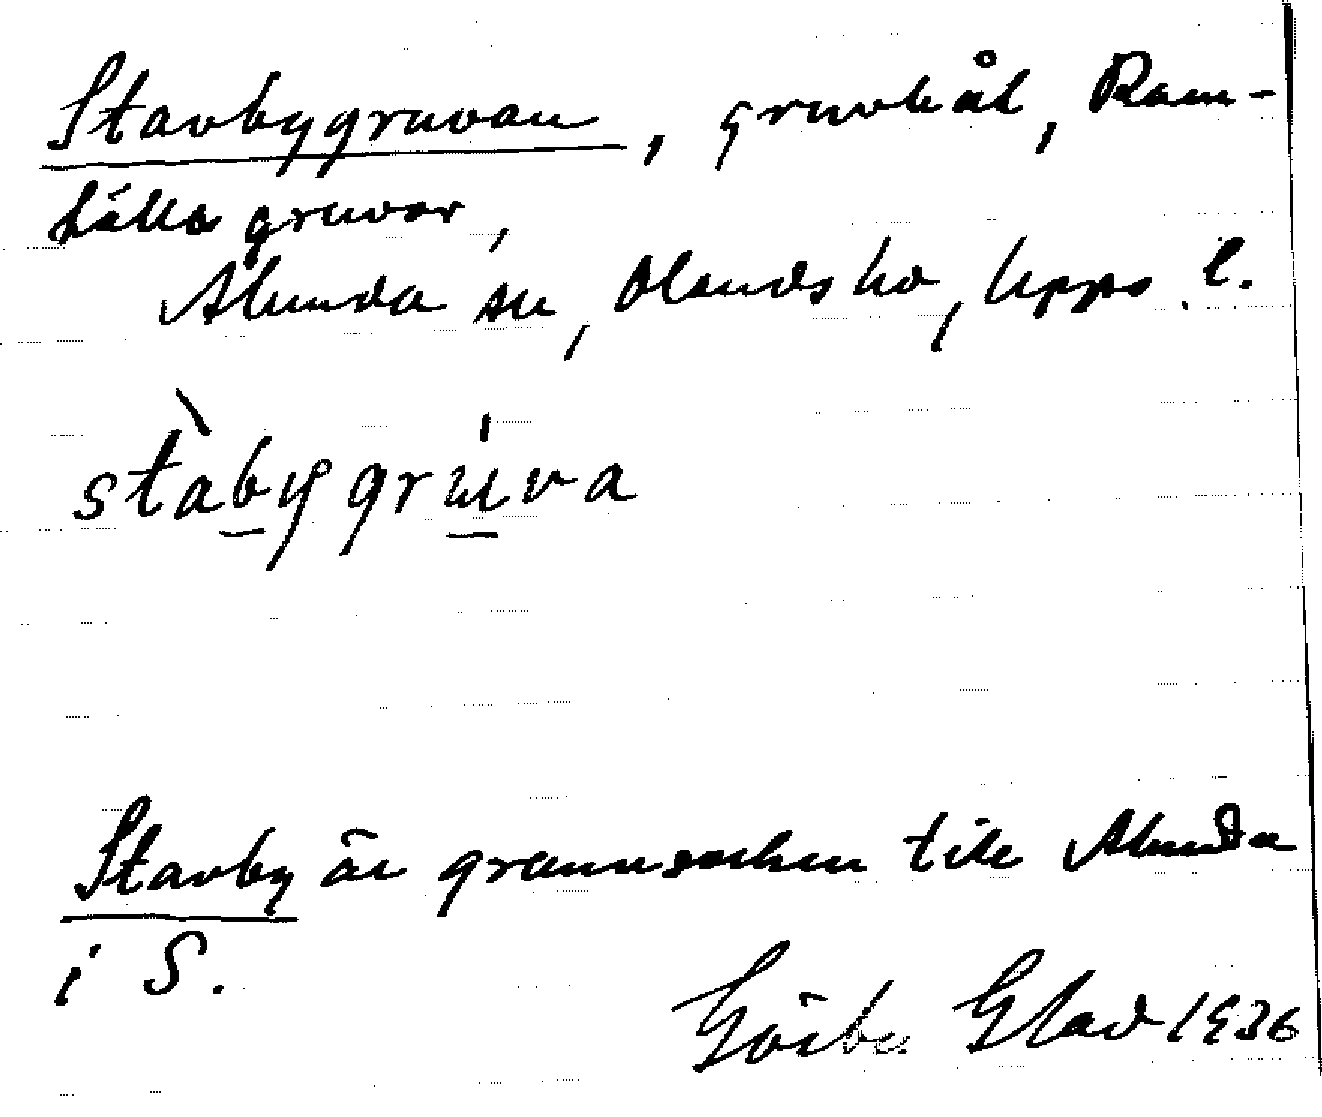 Stavbygruvan, gruvhål, Ram-
hälls gruvor,
Alunda sn, Olands hd, Upps. l.
stàbygrúva
Stavby är grannsocken till Alunda
i S.
Glad 1936